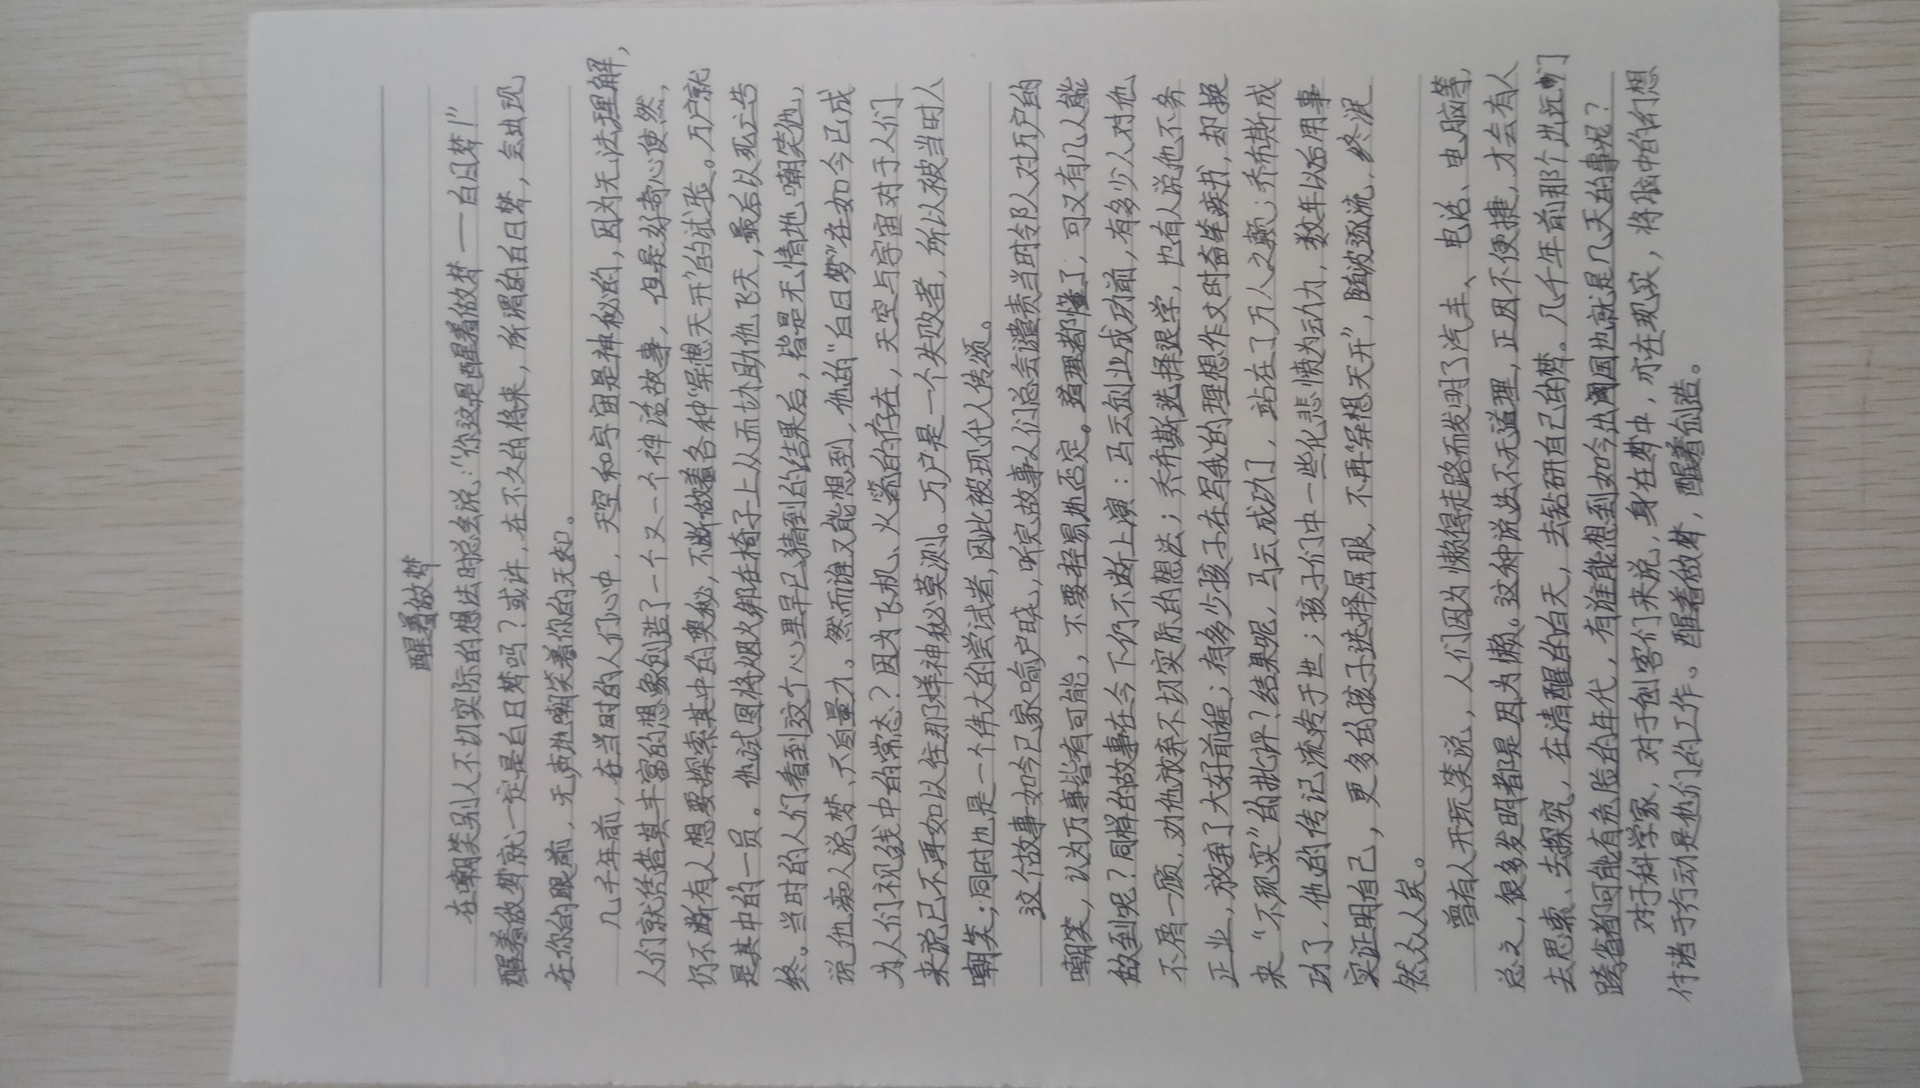 醒着做梦
在嘲笑别人不切实际的想法时总会说:“你这是醒着做梦——白日梦!”
醒着做梦就一定是白日梦吗?或许,在不久的将来,所谓的白日梦,会出现
在你的眼前,无声地嘲笑着你的无知。
几千年前,在当时的人们心中,天空和宇宙是神秘的,因为无法理解,
人们就凭借其丰富的想象创造了一个又一个神话故事,但是好奇心使然,
仍不断有人想要探索其中的奥秘,不断做着各种“异想天开”的试验。万户就
是其中的一员。他试图将烟火绑在椅子上从而协助他飞天,最后以死亡告
终。当时的人们看到这个心里早已猜到的结果后,皆是无情地嘲笑他,
说他痴人说梦、不自量力。然而谁又能想到,他的“白日梦”在如今已成
为人们视线中的常态?因为飞机、火箭的存在,天空与宇宙对于人们
来说已不再如以往那样神秘莫测。万户是一个失败者,所以被当时人
嘲笑;同时也是一个伟大的尝试者,因此被现代人传颂。
这个故事如今已家喻户晓,听完故事人们总会谴责当时邻人对万户的
嘲笑,认为万事皆有可能,不要轻易地否定。道理都懂了,可又有几人能
做到呢?同样的故事在今下仍不断上演:马云创业成功前,有多少人对他
不屑一顾,劝他放弃不切实际的想法;乔布斯选择退学,也有人说他不务
正业,放弃了大好前程;有多少孩子在写我的理想作文时奋笔疾书,却换
来“不现实”的批评?结果呢,马云成功了,站在了万人之巅;乔布斯成
功了,他的传记流传于世;孩子们中一些化悲愤为动力,数年以后用事
实证明自己,更多的孩子选择屈服,不再“异想天开”,随波逐流,终泯
然众人矣。
曾有人开玩笑说,人们因为懒得走路而发明了汽车、电话、电脑等,
总之,很多发明都是因为懒。这种说法不无道理,正因不便捷,才会有人
去思索、去探究,在清醒的白天,去钻研自己的梦。几千年前那个出远门
跨省都可能有危险的年代,有谁能想到如今出国也就是几天的事呢?
对于科学家,对于创客们来说,身在梦中,亦在现实,将脑中的幻想
付诸于行动是他们的工作。醒着做梦,醒着创造。